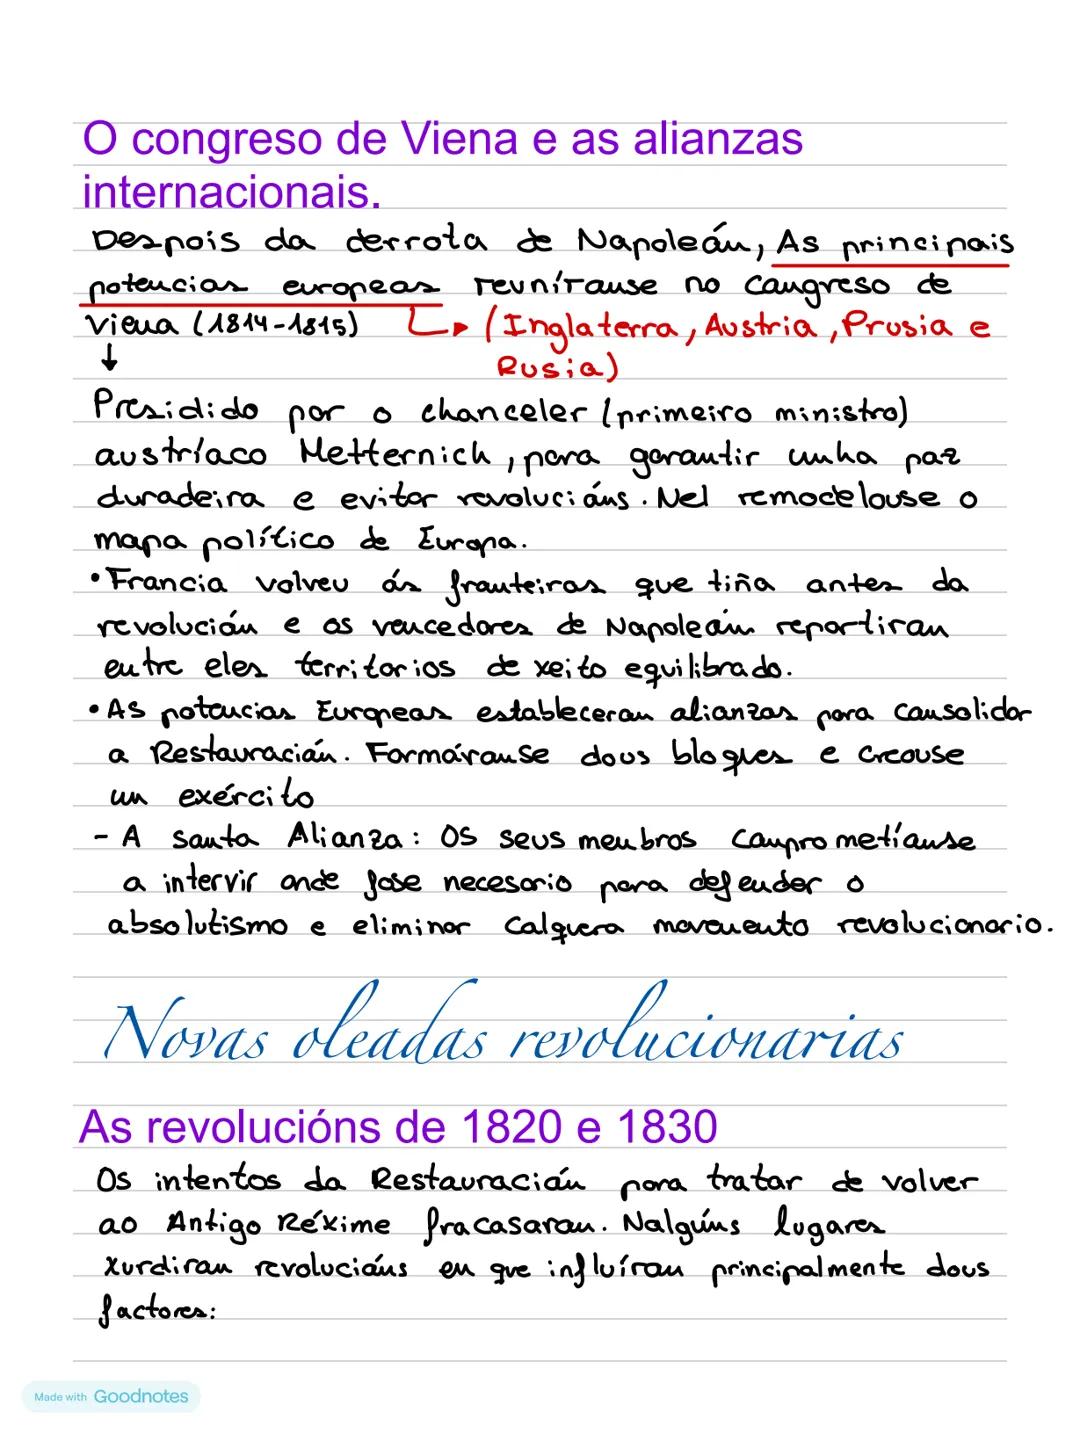 O congreso de Viena e as alianzas
internacionais.
Despois da derrota de Napoleón, As principais
potencias europeas reuníronse no Congreso de
Viena (1814-1815) (Inglaterra, Austria, Prusia e
Rusia)
Presidido por o chanceler (primeiro ministro)
austríaco Metternich, para garantir unha paz
duradeira e evitar revolucións. Nel remodelouse o
mapa político de Europa.
•Francia volveu ás fronteiras que tiña antes da
revolución e os vencedores de Napoleón repartiron
entre eles territorios de xeito equilibrado.
•As potencias Europeas estableceron alianzas para consolidar
a Restauración. Formáronse dous bloques e creouse
un exército
- A santa Alianza: Os seus membros comprometíanse
a intervir onde fose necesario para defender o
absolutismo e eliminar calquera movemento revolucionario.
Novas oleadas revolucionarias
As revolucións de 1820 e 1830
Os intentos da Restauración para tratar de volver
ao Antigo Réxime fracasaron. Nalgúns lugares
xurdiron revolucións en que influíron principalmente dous
factores:
Made with Goodnotes